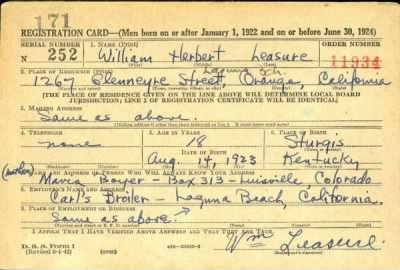 171
REGISTRATION CARD—(Men born on or after January 1, 1922 and on or before June 30, 1924)
SERIAL NUMBER 1. NAME (Print) ORDER NUMBER
N 252 William Herbert Leasure 11934
2. PLACE OF RESIDENCE (Print) Laguna Bch.
1267 Glenneyre Street, Orange, California
[THE PLACE OF RESIDENCE GIVEN ON THE LINE ABOVE WILL DETERMINE LOCAL BOARD
JURISDICTION; LINE 2 OF REGISTRATION CERTIFICATE WILL BE IDENTICAL]
3. MAILING ADDRESS
Same as above.
4. TELEPHONE 5. AGE IN YEARS 6. PLACE OF BIRTH
none 18 Sturgis
DATE OF BIRTH
Aug. 14, 1923 Kentucky
7. NAME AND ADDRESS OF PERSON WHO WILL ALWAYS KNOW YOUR ADDRESS
(mother) Boyer - Box 313 - Luisville, Colorado -
8. EMPLOYER'S NAME AND ADDRESS
Carl's Broiler - Laguna Beach, California.
9. PLACE OF EMPLOYMENT OR BUSINESS
Same as above.
I AFFIRM THAT I HAVE VERIFIED ABOVE ANSWERS AND THAT THEY ARE TRUE.
D. S. S. Form 1 (over) Wm Leasure.